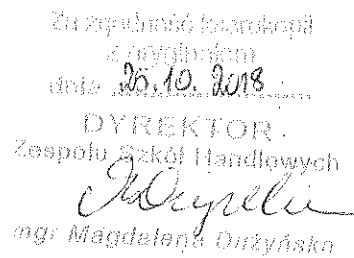 Za zgodność kserokopii
z oryginałem
dnia 25.10.2018
DYREKTOR
Zespołu Szkół Handlowych
mgr Magdalena